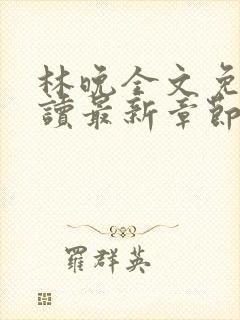 林晚全文免
讀最新章節
羅群英